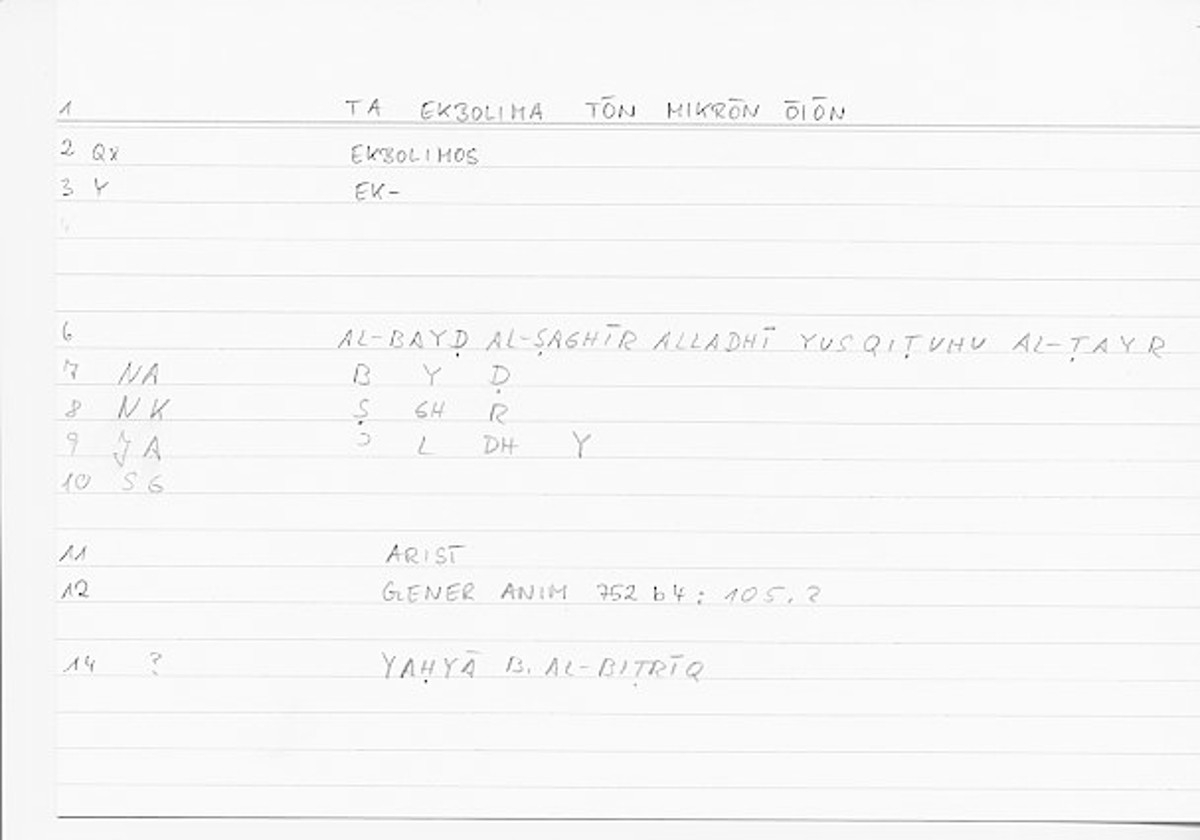 1 TA EKBOLIMA TŌN MIKRŌN ŌIŌN
2 Qx EKBOLIMOS
3 Y EK-
6 AL-BAYḌ AL-ṢAGHĪR ALLADHĪ YUSQIṬUHU AL-ṬAYR
7 NA B Y Ḍ
8 NK Ṣ GH R
9 JA ʾ L DH Y
10 SG
11 ARIST
12 GENER ANIM 752 b4 : 105.2
14 ? YAḤYĀ B. AL-BIṬRĪQ